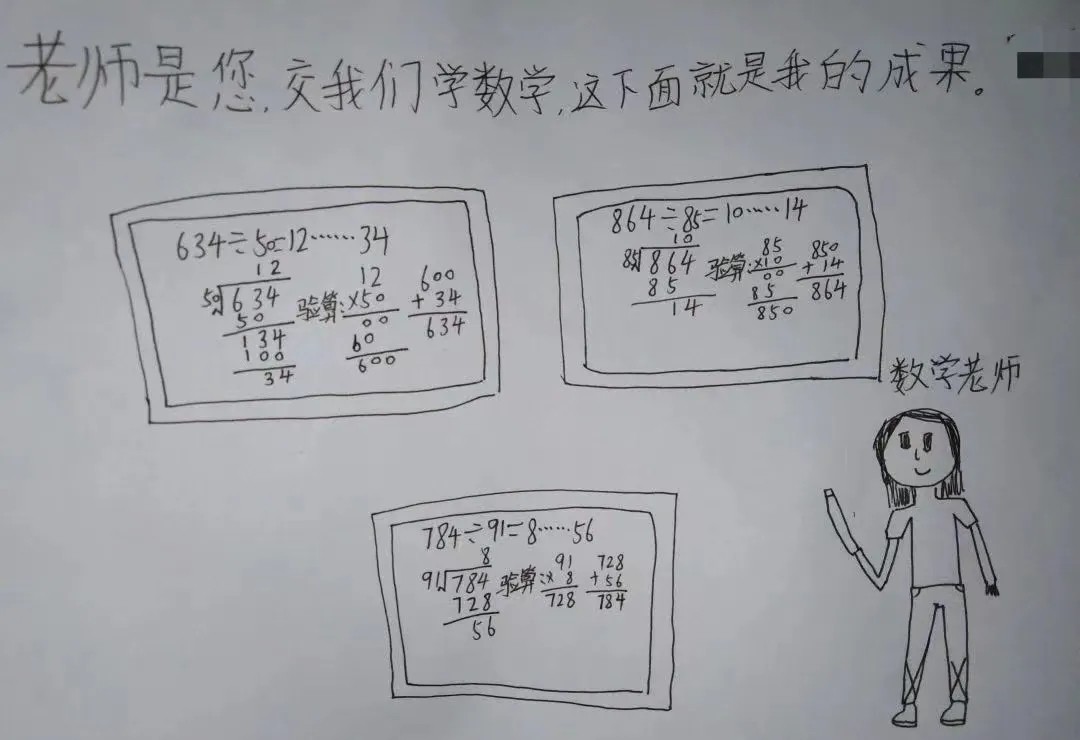 老师是您,交我们学数学,这下面就是我的成果。
634÷50=12……34
12
50 634
50
134
100
34
验算:
12
×50
00
60
600
600
+34
634
864÷85=10……14
10
85 864
85
14
验算:
85
×10
00
85
850
850
+14
864
数学老师
784÷91=8……56
8
91 784
728
56
验算:
91
×8
728
728
+56
784